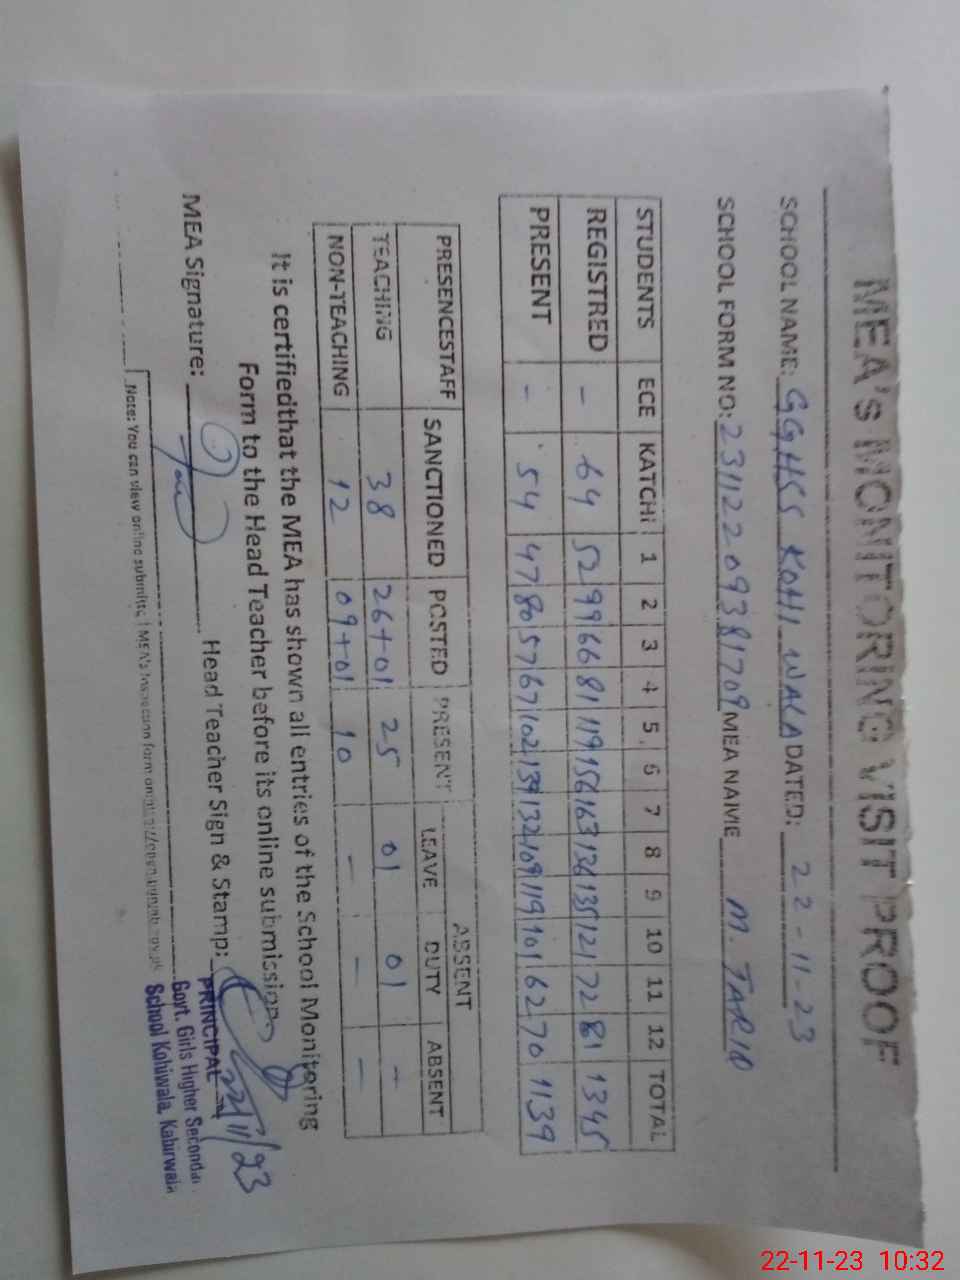 MEA's MONITORING VISIT PROOF
SCHOOL NAME: GGHSS KOHI WALA DATED: 22-11-23
SCHOOL FORM NO: 23112209381709 MEA NAME M. TARIQ
STUDENTS ECE KATCHI 1 2 3 4 5 6 7 8 9 10 11 12 TOTAL
REGISTRED - 64 52 99 66 81 119 156 163 136 135 121 72 81 1345
PRESENT - 54 47 80 57 67 102 139 132 109 119 101 62 70 1139
ABSENT
PRESENCESTAFF SANCTIONED POSTED PRESENT LEAVE DUTY ABSENT
TEACHING 38 26+01 25 01 01 -
NON-TEACHING 12 09+01 10 - - -
It is certifiedthat the MEA has shown all entries of the School Monitoring
Form to the Head Teacher before its online submission
MEA Signature: Head Teacher Sign & Stamp:
PRINCIPAL
Govt. Girls Higher Seconda
School Kohiwala, Kabirwala
Note: You can view online submitted MEA's Inspection form on
22-11-23 10:32